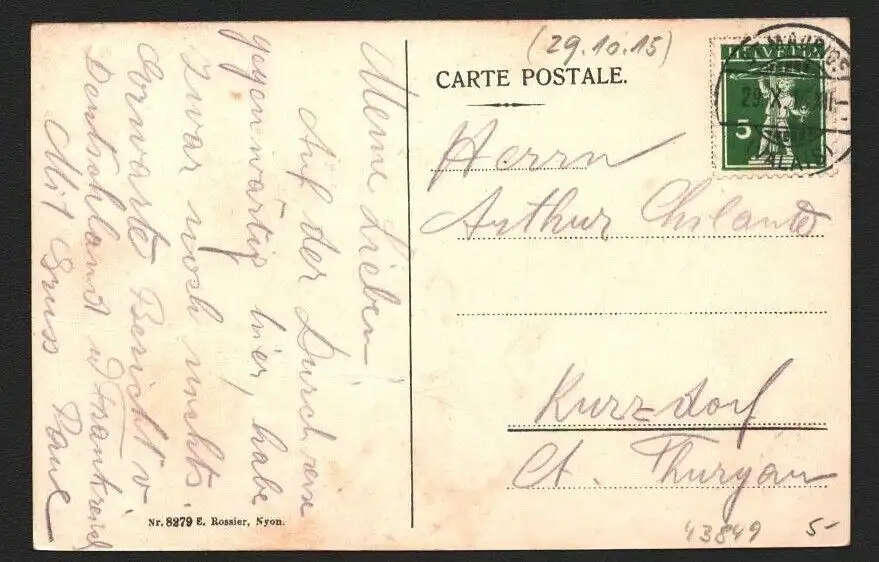 Meine Lieben
Auf der Durchreise
gegenwärtig hier, habe
zwar noch nichts.
Erwarte Bericht v
Deutschland u Frankreich
Mit Gruss Paul
Nr. 8279 E. Rossier, Nyon.
(29.10.15)
CARTE POSTALE.
HELVETIA
5
Herrn
Arthur
Kurzdorf
Ct. Thurgau
43849 5-